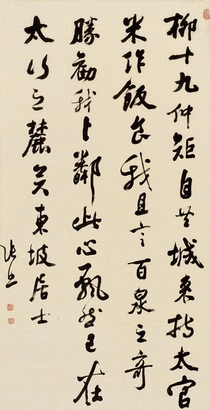 柳十九仲矩自共城来持太官
米作飯食我且言百泉之奇
勝勸我卜鄰此心飄然已在
太行之麓矣東坡居士